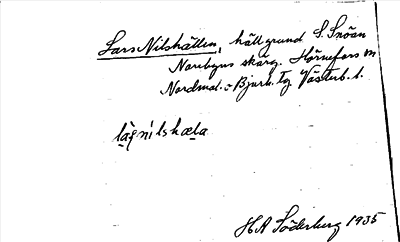 Lars Nilshällen, hällgrund S. Snöan
Norrbyns skärg. Hörnefors sn
Nordmal. o Bjurh. tg Västerb. l.
lạ̄ṣnilshæla
HA Söderberg 1935